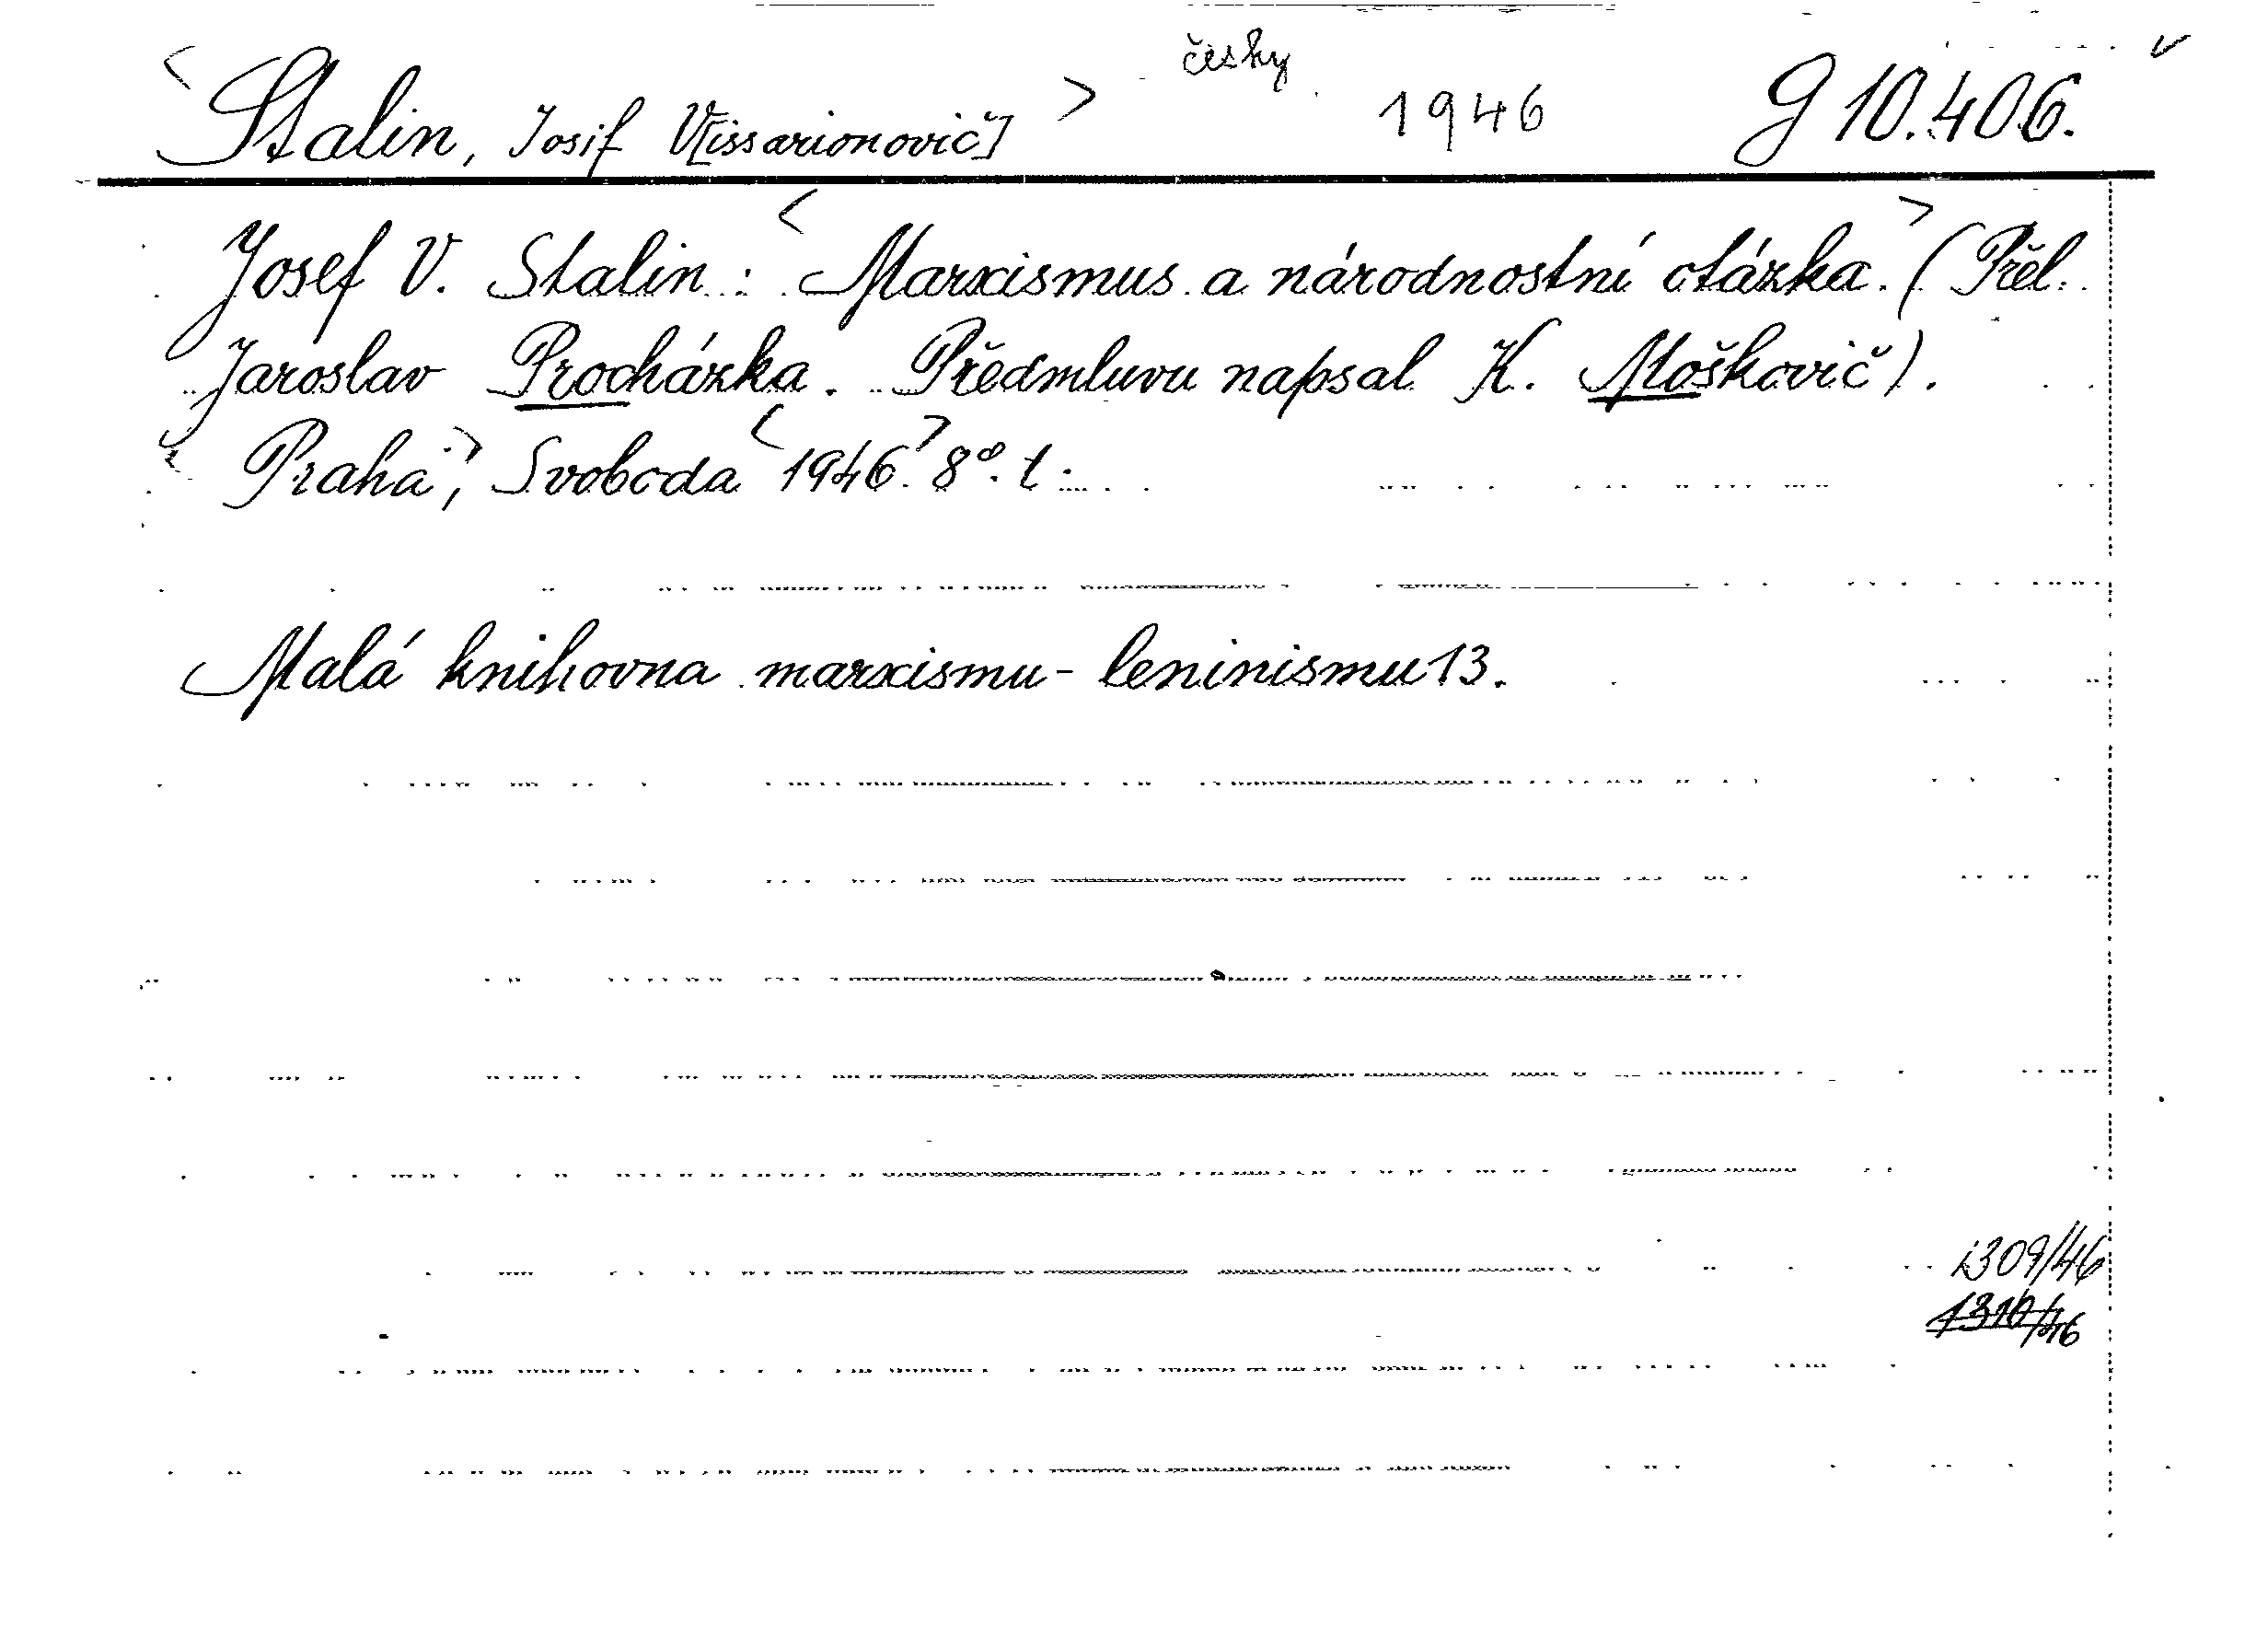 <Stalin, Josif V[issarionovič]> česky 1946 G 10.406. v
Josef V. Stalin: <Marxismus a národnostní otázka.> (Přel.
Jaroslav Procházka. Předmluvu napsal K. Moškovič).
<Praha,> Svoboda <1946.> 8°. t.
Malá knihovna marxismu-leninismu 13.
i309/46
1310/46